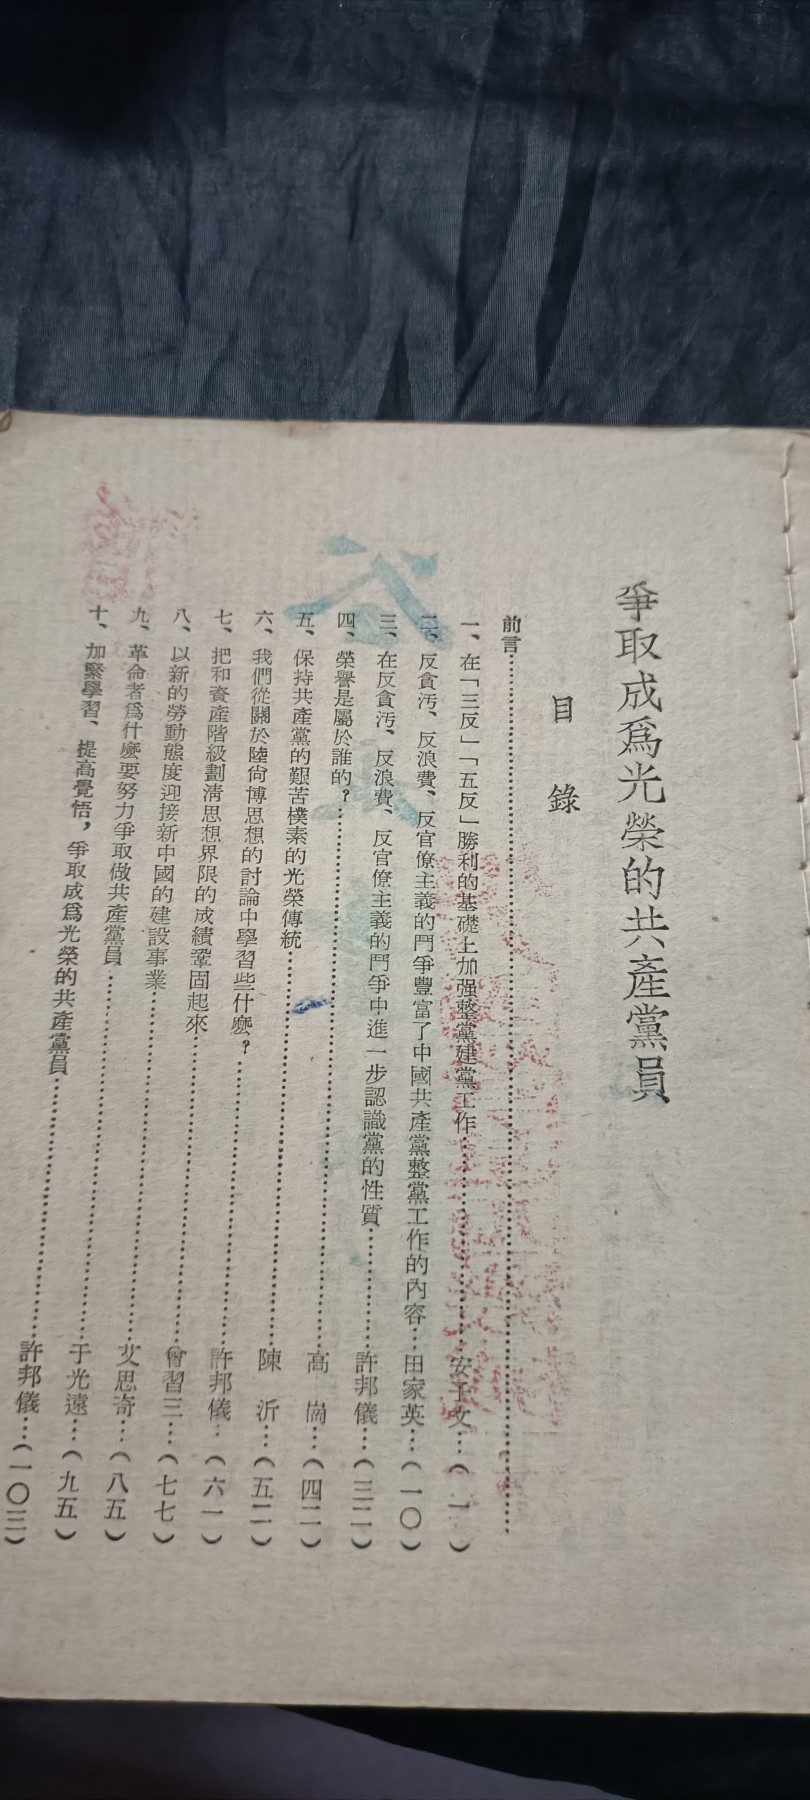 爭取成爲光榮的共產黨員
目錄
前言
一、在「三反」「五反」勝利的基礎上加强整黨建黨工作…安子文…(一)
二、反貪汚、反浪費、反官僚主義的鬥爭豐富了中國共產黨整黨工作的內容…田家英…(一〇)
三、在反貪汚、反浪費、反官僚主義的鬥爭中進一步認識黨的性質…許邦儀…(三二)
四、榮譽是屬於誰的？…高崗…(四二)
五、保持共產黨的艱苦樸素的光榮傳統…陳沂…(五二)
六、我們從關於陸尙博思想的討論中學習些什麽？…許邦儀…(六一)
七、把和資產階級劃淸思想界限的成績鞏固起來…曾習三…(七七)
八、以新的勞動態度迎接新中國的建設事業…艾思奇…(八五)
九、革命者爲什麽要努力爭取做共產黨員…于光遠…(九五)
十、加緊學習、提高覺悟，爭取成爲光榮的共產黨員…許邦儀…(一〇三)